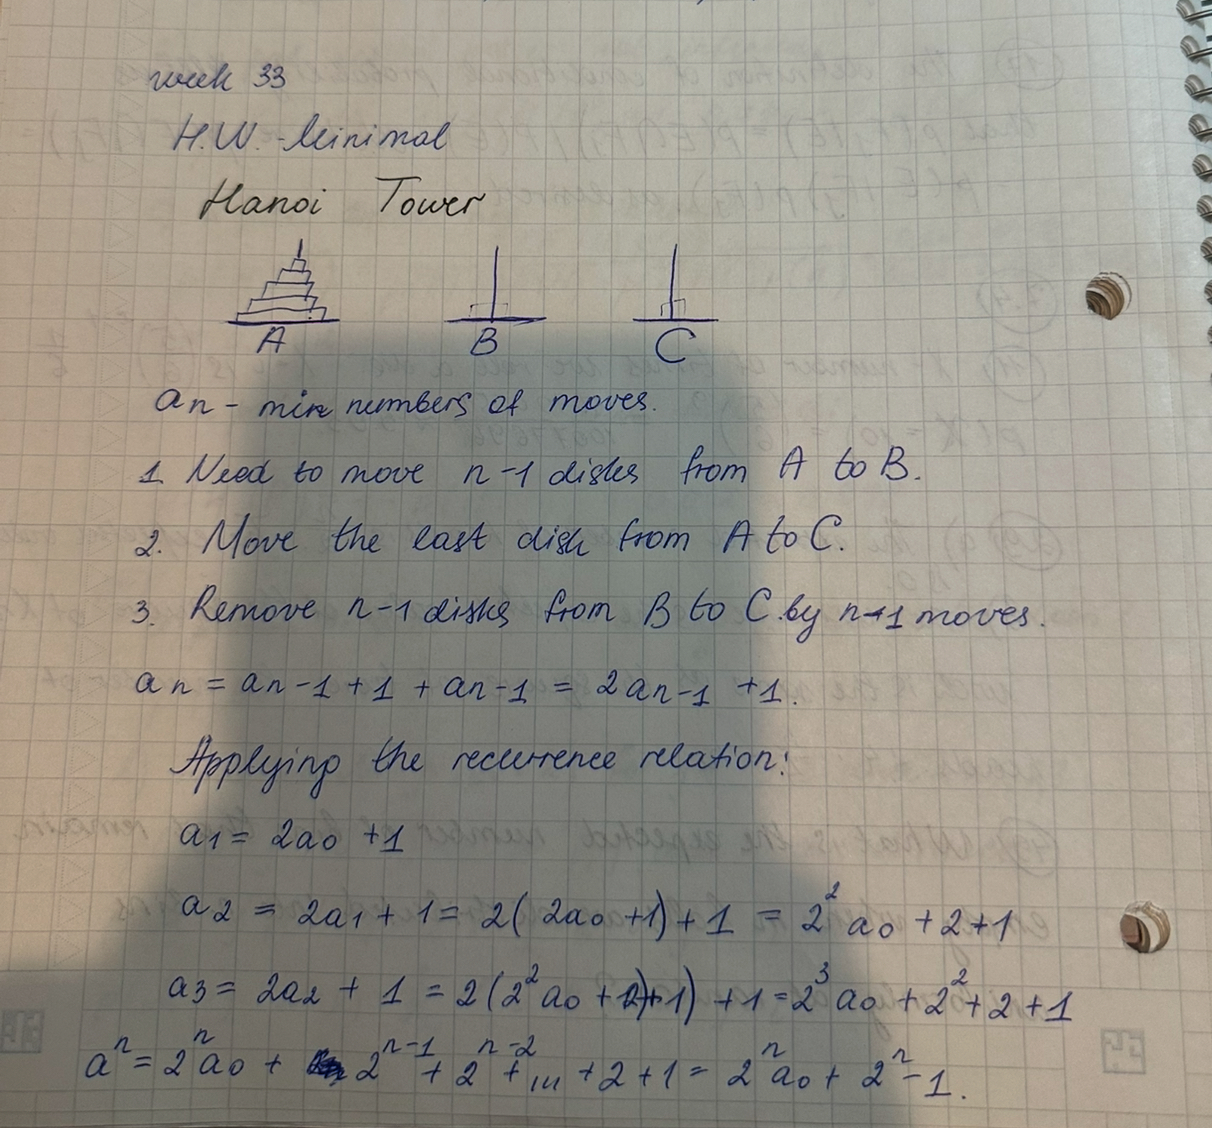 week 33
H.W. - Minimal
Hanoi Tower
A B C
an - min numbers of moves.
1. Need to move n-1 disks from A to B.
2. Move the last disk from A to C.
3. Remove n-1 disks from B to C by n-1 moves.
an = an-1 + 1 + an-1 = 2an-1 + 1.
Applying the recurrence relation:
a1 = 2a0 + 1
a2 = 2a1 + 1 = 2(2a0 + 1) + 1 = 2² a0 + 2 + 1
a3 = 2a2 + 1 = 2(2² a0 + 2 + 1) + 1 = 2³ a0 + 2² + 2 + 1
aⁿ = 2ⁿ a0 + 2ⁿ⁻¹ + 2ⁿ⁻² + ... + 2 + 1 = 2ⁿ a0 + 2ⁿ - 1.